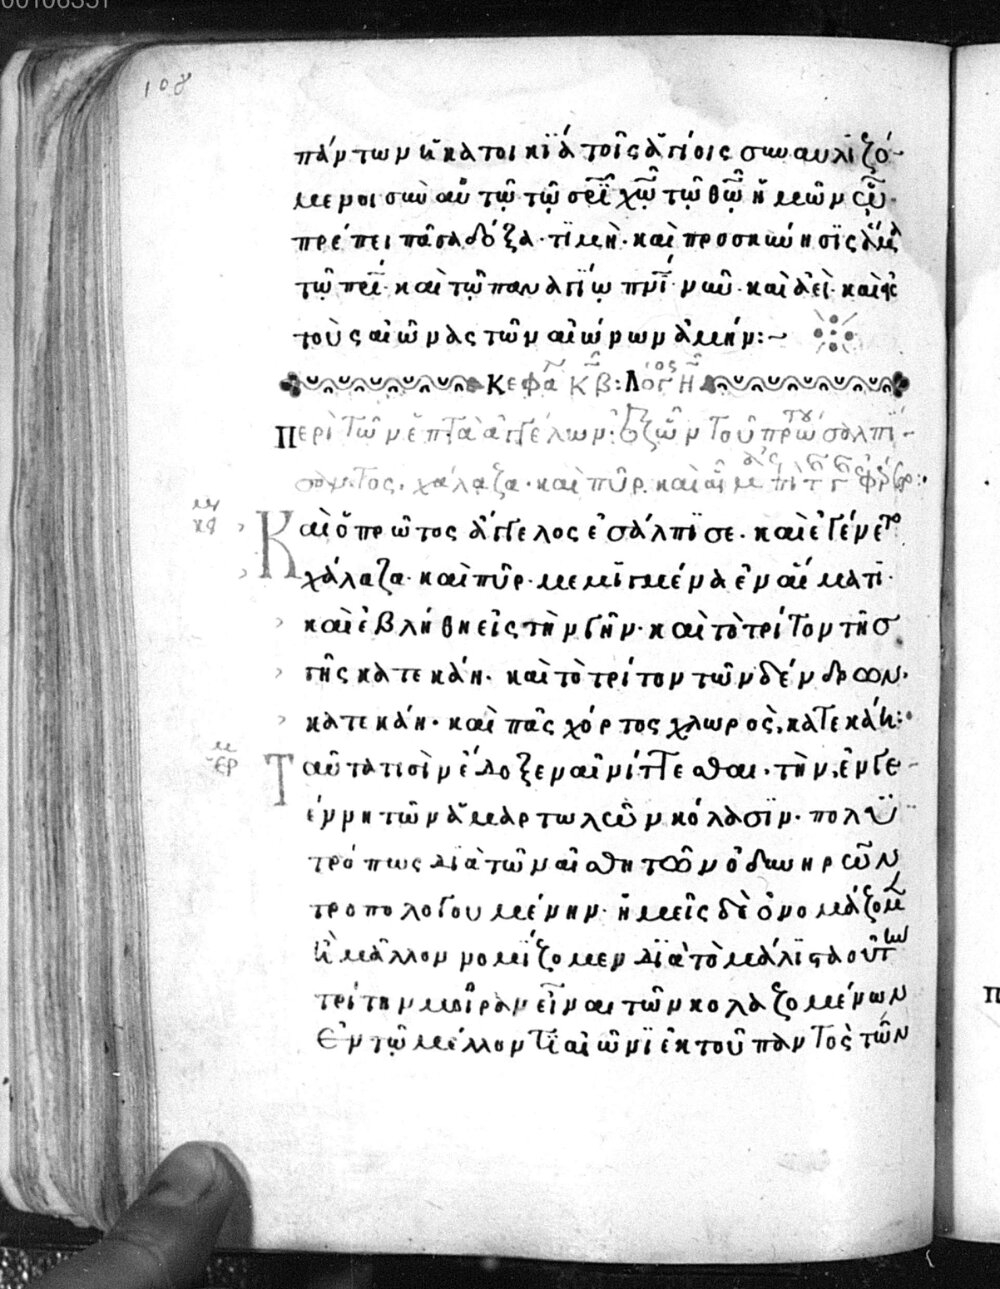 108
πάντων κατοικία τοῖς ἁγίοις συναυλιζό-
μενοι σὺν αὐτῷ τῷ σρι χω τῷ θω ἡμῶν ᾧ
πρέπει πᾶσα δόξα· τιμὴ· καὶ προσκύνησις ἅμα
τῷ πρι· καὶ τῷ παναγίῳ πνι· νῦν· καὶ ἀεὶ· καὶ εἰς
τοὺς αἰῶνας τῶν αἰώνων ἀμήν:~
Κεφα ΚΒ: Λογος Η
Περὶ τῶν ἑπτὰ ἀγγέλων· τοῦ πρώτου σαλπί-
σαντος, χάλαζα· καὶ πῦρ· καὶ
Καὶ ὁ πρῶτος ἄγγελος ἐσάλπισε· καὶ ἐγένετο
χάλαζα· καὶ πῦρ· μεμιγμένα ἐν αἵματι·
καὶ ἐβλήθη εἰς τὴν γῆν· καὶ τὸ τρίτον τῆσ
γῆς κατεκάη· καὶ τὸ τρίτον τῶν δένδρων·
κατεκάη· καὶ πᾶς χόρτος χλωρος, κατεκάη:·
ερ
Ταῦτα τισὶν ἔδοξεν αἰνίττεσθαι· τὴν, ἐν γε-
έννη τῶν ἁμαρτωλῶν κόλασιν· πολυ
τρόπως διὰ τῶν αἰσθητῶν ὀδυνηρῶν
τροπολογουμένην· ἡμεῖς δὲ ὀνομάζομεν
μᾶλλον νομίζομεν διὰ τὸ μάλιστα οὕτω
τρίτην μοῖραν εἶναι τῶν κολαζομένων
Ἐν τῷ μέλλοντι αἰῶνι ἐκ τοῦ παντὸς τῶν